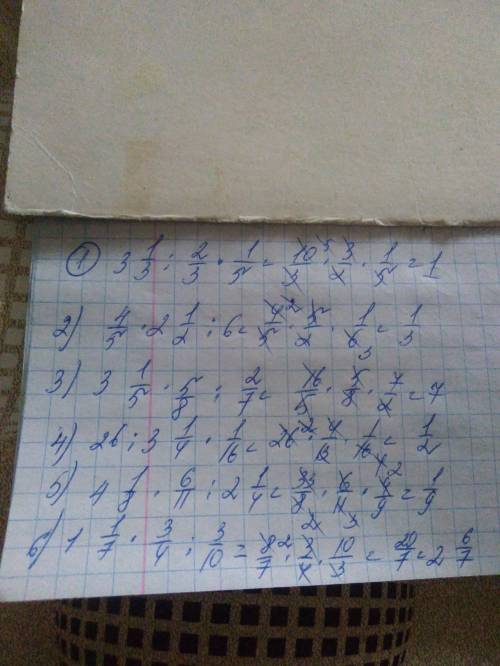 1 3 1/3 : 2/3 · 1/5 = 10/3 · 3/2 · 1/5 = 1
2) 4/5 · 2 1/2 : 6 = 4/5 · 5/2 · 1/6 = 1/3
3) 3 1/5 · 5/8 : 2/7 = 16/5 · 5/8 · 7/2 = 7
4) 26 : 3 1/4 · 1/16 = 26 · 4/13 · 1/16 = 1/2
5) 4 1/8 · 6/11 : 2 1/4 = 33/8 · 6/11 · 4/9 = 1/9
6) 1 1/7 · 3/4 : 3/10 = 8/7 · 3/4 · 10/3 = 20/7 = 2 6/7